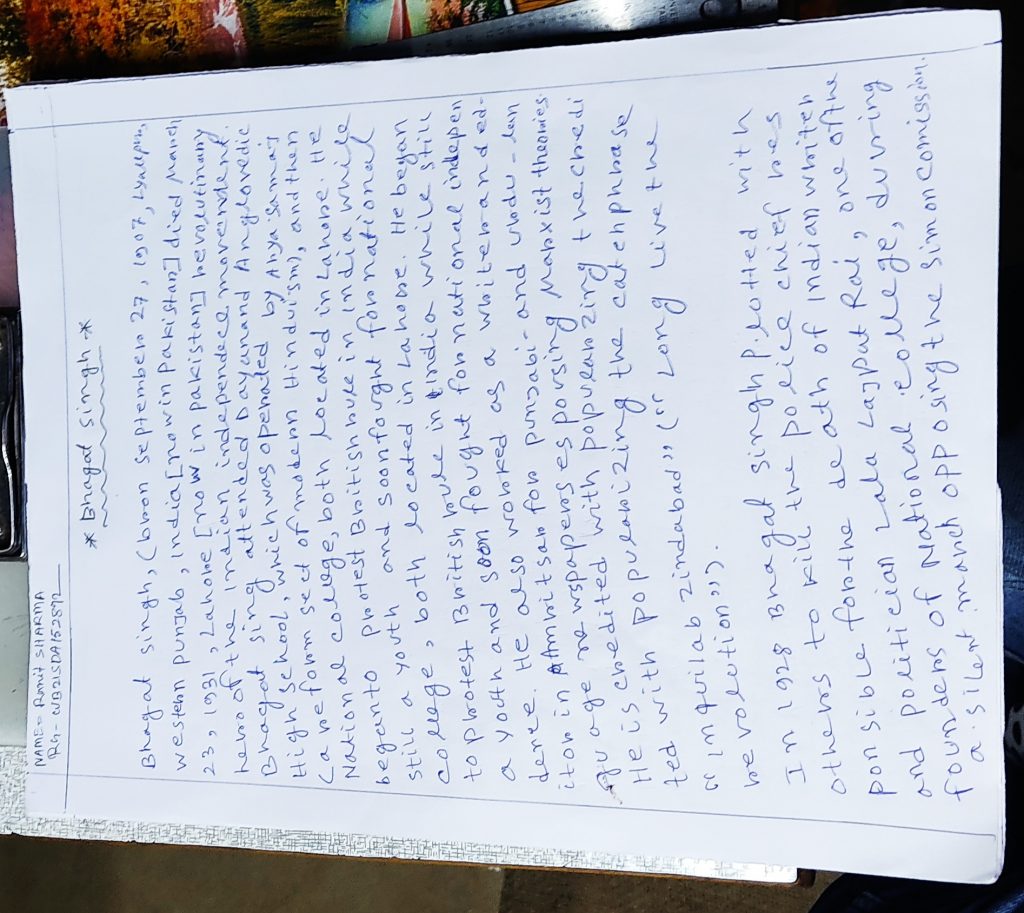 NAME= Rumit SHARMA
RG- WB21SDA152872
* Bhagat Singh *
Bhagat singh, (bron September 27, 1907, Lyallpur,
western punjab, India [now in pakistan] died March
23, 1931, Lahore [now in pakistan] revolutinary
hero of the Indian independence movendent.
Bhagat sing attended Dayanand Anglovedic
High school, which was operated by Arya Samaj
(a reform sect of modern Hinduism), and then
National college, both located in Lahore. He
began to protest British rule in India while
still a youth and soon fought for national
college, both located in Lahore. He began
to protest British rule in India while still
a youth and soon fought for national indepen
dence. He also worked as a writer and ed-
itor in Amritsar for punjabi- and urdu-lan
guage newspapers espousing Marxist theories.
He is credited with popularizing the credi
ted with popularizing the catchphrase
"inquilab zindabad" ("Long live the
revolution").
In 1928 Bhagat singh plotted with
others to kill the police chief res
ponsible for the death of Indian writer
and politician Lala Lajpat Rai, one of the
founders of National college, during
a silent march opposing the simon comission.